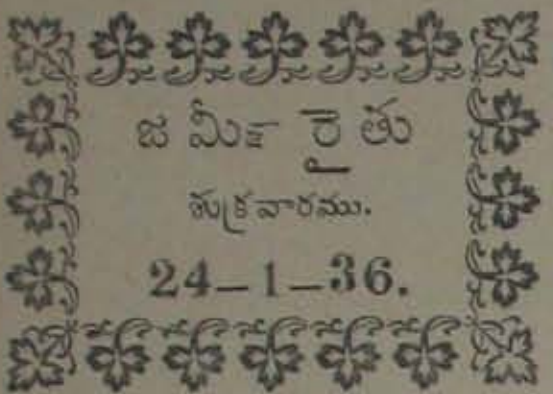 జమీన్ రైతు
శుక్రవారము.
24-1-36.